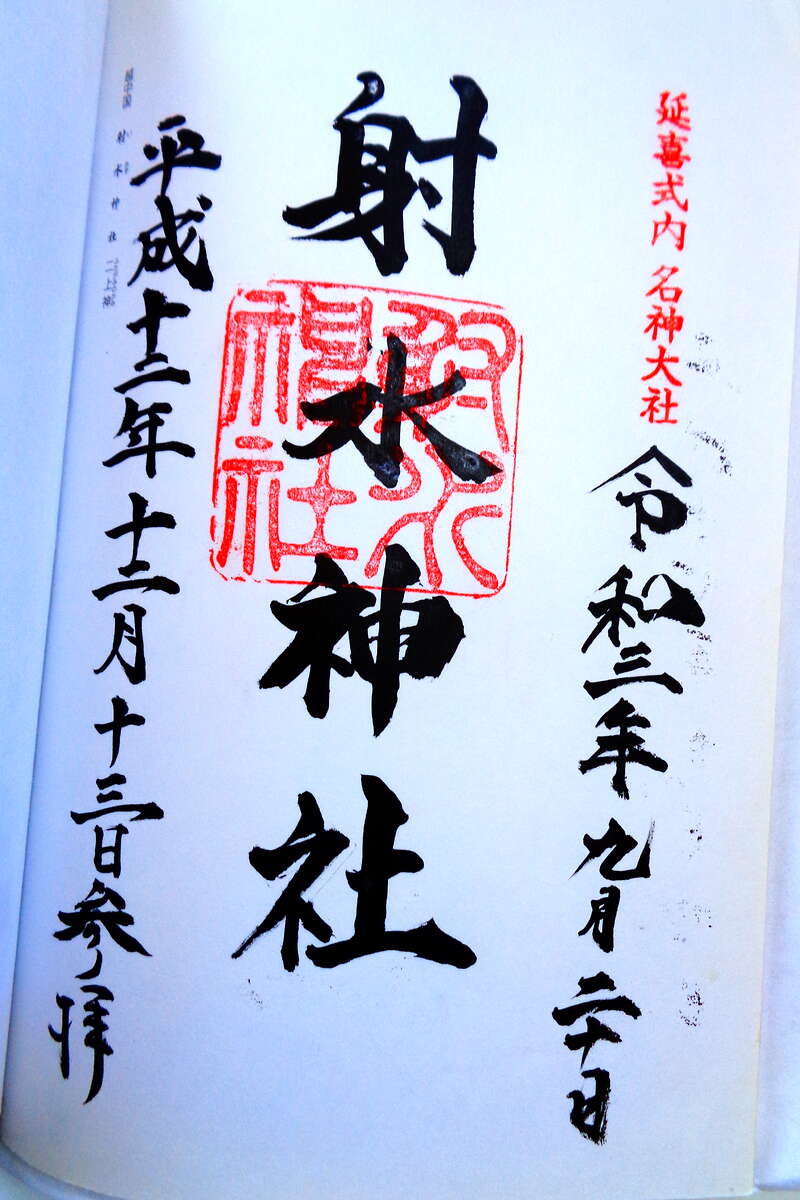 延喜式内 名神大社
令和三年九月二十日
射水神社
射水神社
平成十二年十二月十三日参拝
越中国 射水神社